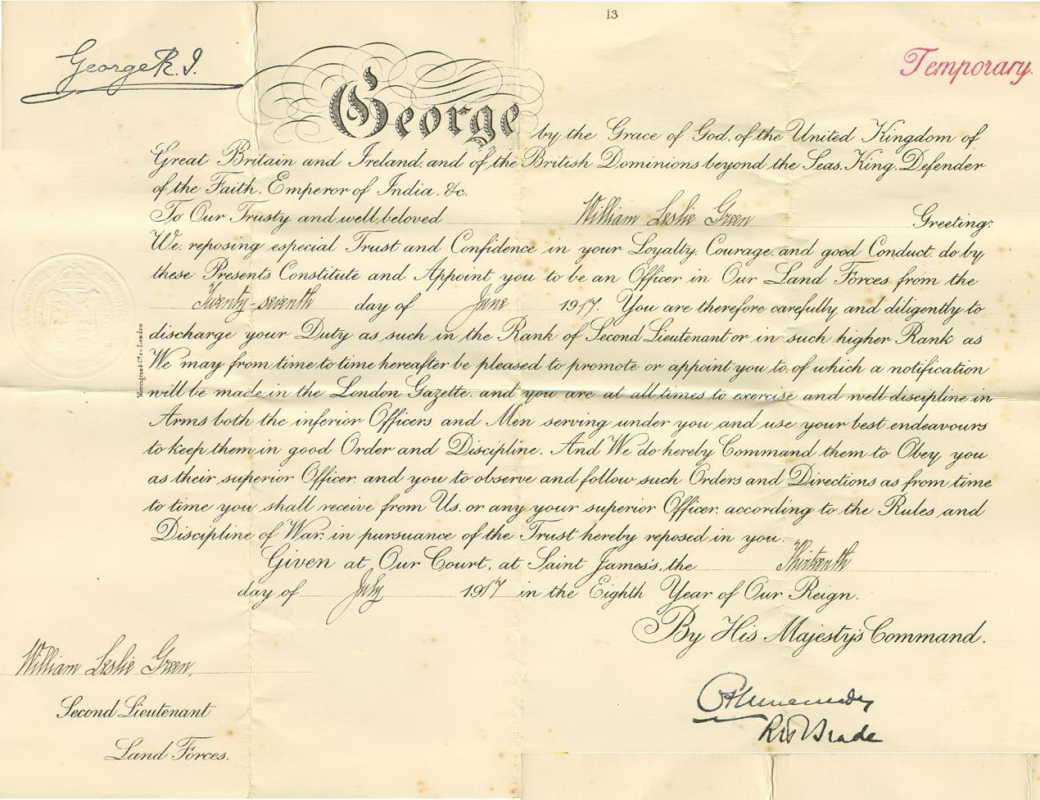 13
George R.I.
Temporary.
George by the Grace of God, of the United Kingdom of
Great Britain and Ireland, and of the British Dominions beyond the Seas, King, Defender
of the Faith, Emperor of India, &c.
To Our Trusty and well beloved William Leslie Green Greeting:
We, reposing especial Trust and Confidence in your Loyalty, Courage, and good Conduct, do by
these Presents Constitute and Appoint you to be an Officer in Our Land Forces from the
Twenty-seventh day of June 1917. You are therefore carefully and diligently to
discharge your Duty as such in the Rank of Second Lieutenant or in such higher Rank as
We may from time to time hereafter be pleased to promote or appoint you to, of which a notification
will be made in the London Gazette, and you are at all times to exercise and well discipline in
Arms both the inferior Officers and Men serving under you and use your best endeavours
to keep them in good Order and Discipline. And We do hereby Command them to Obey you
as their superior Officer, and you to observe and follow such Orders and Directions as from time
to time you shall receive from Us, or any your superior Officer, according to the Rules and
Discipline of War, in pursuance of the Trust hereby reposed in you.
Given at Our Court, at Saint James's, the Thirteenth
day of July 1917 in the Eighth Year of Our Reign.
By His Majesty's Command.
William Leslie Green,
Second Lieutenant
Land Forces.